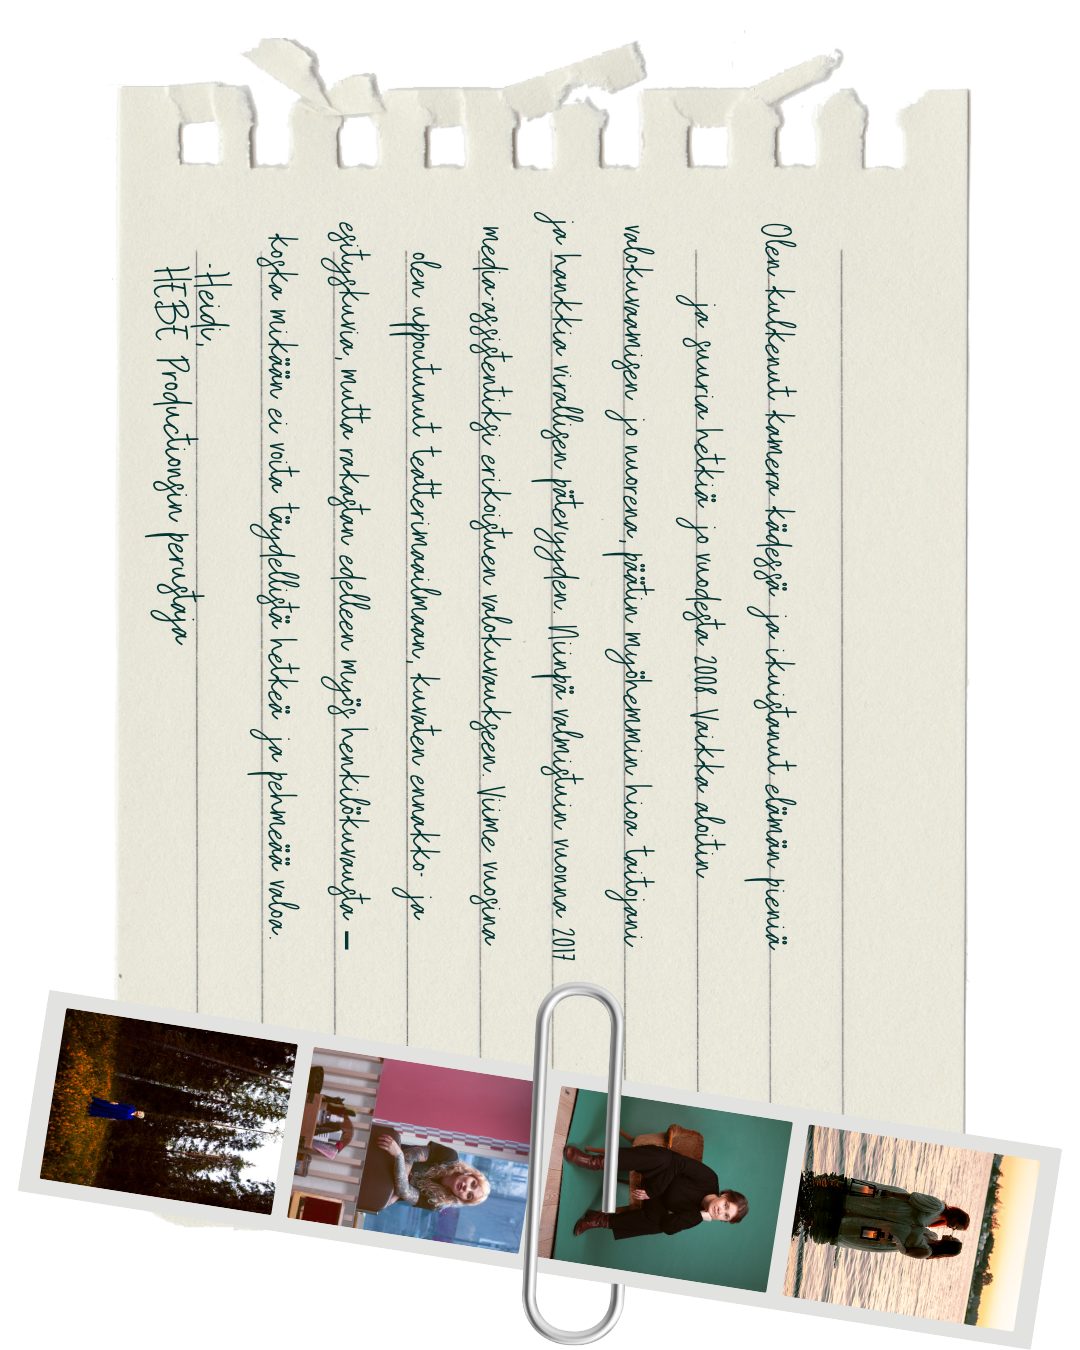 Olen kulkenut kamera kädessä ja ikuistanut elämän pieniä
ja suuria hetkiä jo vuodesta 2008. Vaikka aloitin
valokuvaamisen jo nuorena, päätin myöhemmin hioa taitojani
ja hankkia virallisen pätevyyden. Niinpä valmistuin vuonna 2017
media-assistentiksi erikoistuen valokuvaukseen. Viime vuosina
olen uppoutunut teatterimaailmaan, kuvaten ennakko- ja
esityskuvia, mutta rakastan edelleen myös henkilökuvausta –
koska mikään ei voita täydellistä hetkeä ja pehmeää valoa.
-Heidi,
HEBE Productionsin perustaja